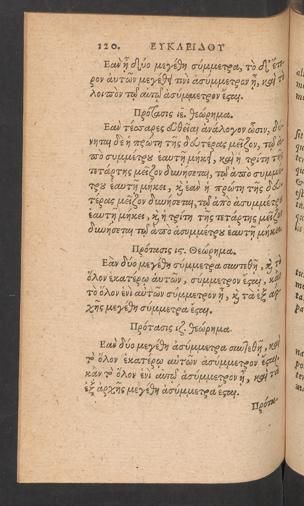 120. ΕΥΚΛΕΙΔΟΥ
Ἐὰν ᾖ δύο μεγέθη σύμμετρα, τὸ δ' ἕτε-
ρον αὐτῶν μεγέθει τινὶ ἀσύμμετρον ᾖ, καὶ τὸ
λοιπὸν τῷ αὐτῷ ἀσύμμετρον ἔσται.
Πρότασις ιε. θεώρημα.
Ἐὰν τέσσαρες εὐθεῖαι ἀνάλογον ὦσιν, δύ-
νηται δὲ ἡ πρώτη τῆς δευτέρας μεῖζον, τῷ ἀ-
πὸ συμμέτρου ἑαυτῇ μήκει, καὶ ἡ τρίτη τῆς
τετάρτης μεῖζον δυνήσεται, τῷ ἀπὸ συμμέ-
τρου ἑαυτῇ μήκει, κ, ἐὰν ἡ πρώτη τῆς δευ-
τέρας μεῖζον δύνηται, τῷ ἀπὸ ἀσυμμέτρου
ἑαυτῇ μήκει, κ, ἡ τρίτη τῆς τετάρτης μεῖζον
δυνήσεται τῷ ἀπὸ ἀσυμμέτρου ἑαυτῇ μήκει.
Πρότασις ις. Θεώρημα.
Ἐὰν δύο μεγέθη σύμμετρα συντεθῇ, κ, τὸ
ὅλον ἑκατέρῳ αὐτῶν, σύμμετρον ἔσται, κἂν
τὸ ὅλον ἑνὶ αὐτῶν σύμμετρον ᾖ, κ, τὰ ἐξ ἀρ-
χῆς μεγέθη σύμμετρα ἔσται.
Πρότασις ιζ. θεώρημα.
Ἐὰν δύο μεγέθη ἀσύμμετρα συντεθῇ, καὶ
τὸ ὅλον ἑκατέρῳ αὐτῶν ἀσύμμετρον ἔσται.
κἂν τὸ ὅλον ἑνὶ αὐτῶν ἀσύμμετρον ᾖ, καὶ τὰ
ἐξ ἀρχῆς μεγέθη ἀσύμμετρα ἔσται.
Πρότα-